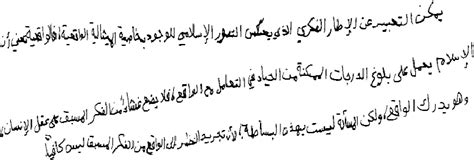 يمكن التعبير عن الإطار الفكري الذي يعكس التصور الإسلامي للوجود بخاصية المثالية الواقعية، فالواقعية تعني أن
الإسلام يعمل على بلوغ الدرجات الممكنة من الحياد في التعامل مع الواقع، فلا يضع غشاءً من الفكر المسبق على عقل الإنسان
وهو يدرك الواقع، ولكن المسألة ليست بهذه البساطة، لأن تجريد النظر إلى الواقع من الفكر المسبق ليس كافياً